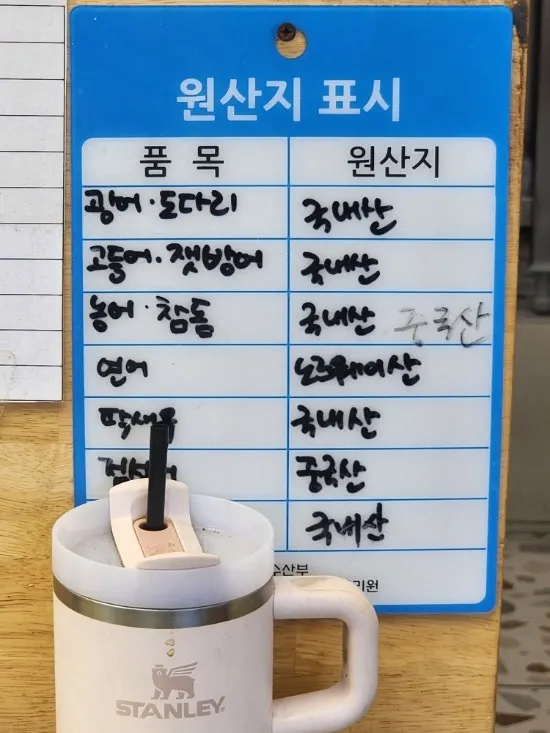 원산지 표시
품 목 원산지
광어·도다리 국내산
고등어·잿방어 국내산
농어·참돔 국내산 중국산
연어 노르웨이산
딱새우 국내산
중국산
국내산
수산부
리원
STANLEY